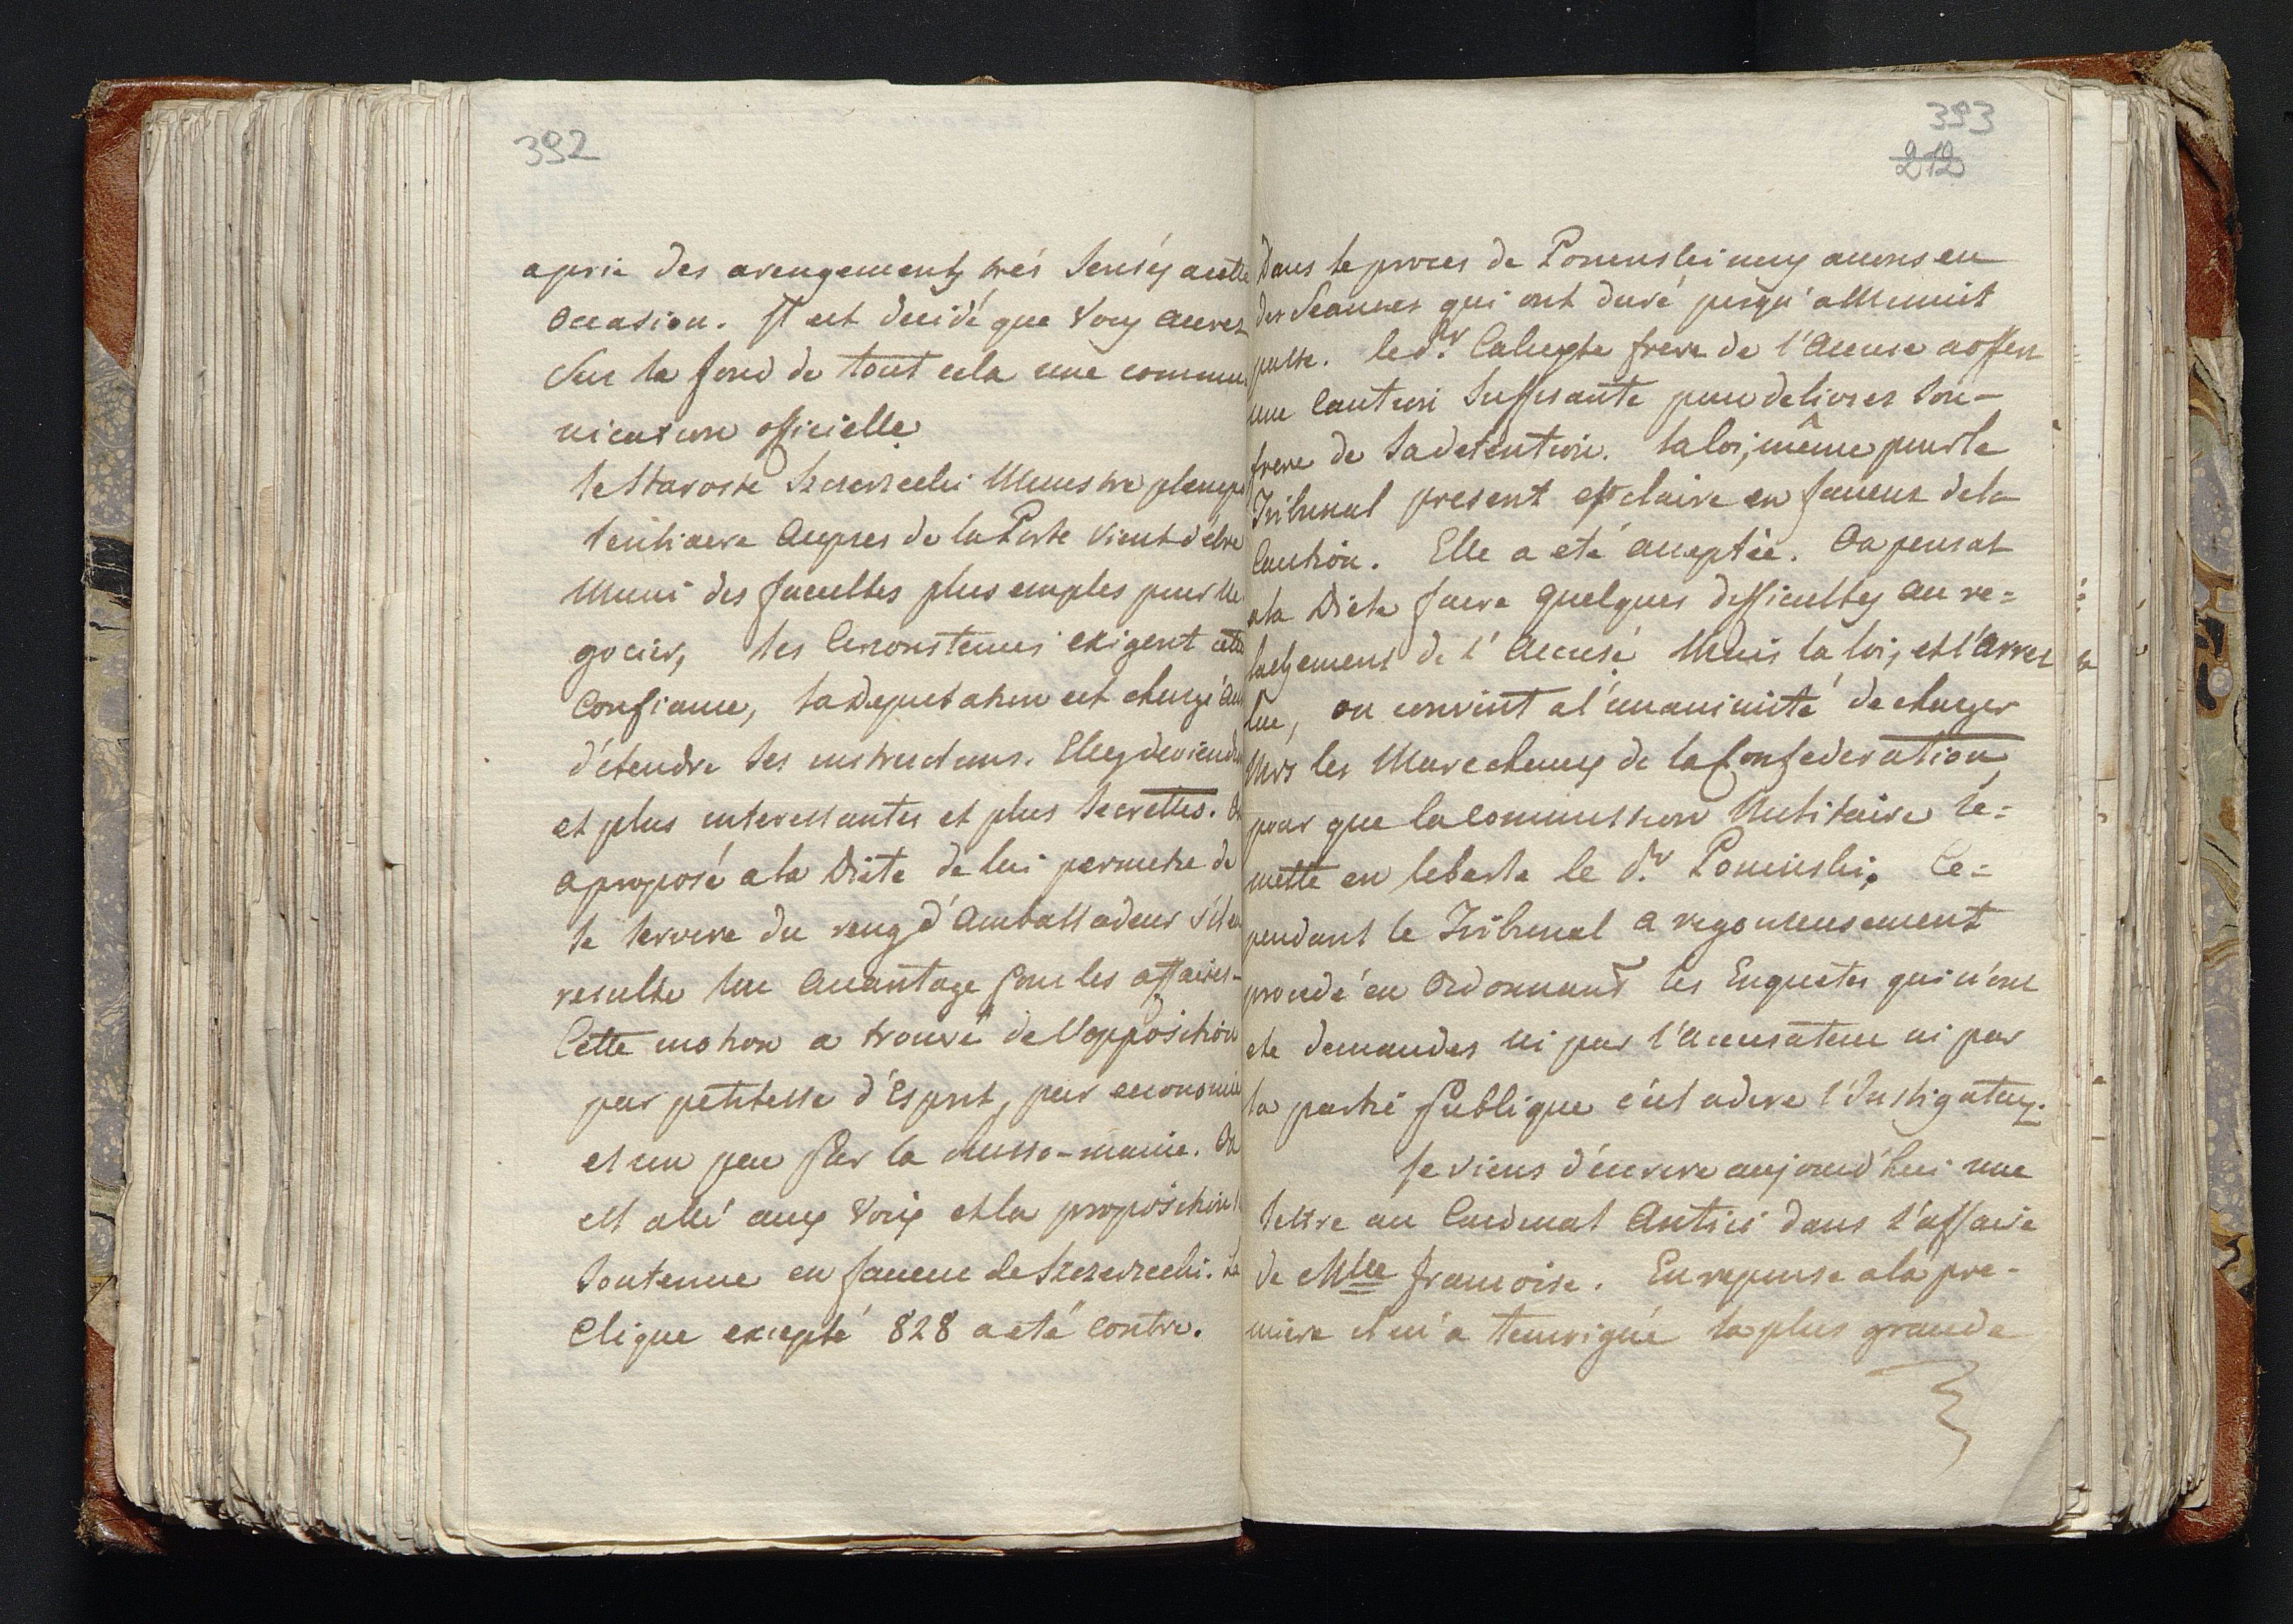 392
apris des arengements trés sensés a cette
occasion. Il est decidé que Vous aurez
sur le fond de tout cela une commu
nication officielle
le Staroste Szczerzecki Ministre plenipo
tentiaire aupres de la Porte vient d'être
Muni des facultes plus amples pour ne
gocier, les Circonstences exigent cette
Confiance, la deputation est chargé
d'étendre ses instructions. Elles deviendr
et plus interessantes et plus secrettes. On
a proposé a la Diete de lui permetre de
se servire du reng d'Ambassadeur s'il en
resulte un avantage pour les affaires-
Cette motion a trouvé de l'opposition
par petitesse d'Esprit, par economie
et un peu par la Russo-manie. On
est allé aux Voix et la proposition
soutenue en faveur de Szczerzecki. La
Clique excepté 828 a eté contre.
393
212
Dans le proces de Poninski nous avons eu
des Seances qui ont duré jusqu'a Menuit
passe. le Sr. Calixte frere de l'Accuse a offert
une Caution suffisante pour delivrer son-
frere de sa detention. la loi, même pour le
Tribunal present est claire en faveur de la
Caution. Elle a eté acceptée. On pensat
a la Diete faire quelques difficultes au re=
lachement de l'Accusé Mais la loi, et l'Arret
lue, on convint a l'unanimité de charger
Mrs les Marechaux de la Confederation
pour que la Commission Militaire re=
mette en liberte le Sr. Poninski. Ce=
pendant le Tribunal a rigoureusement
procedé en Ordonnant les Enquetes qui n'ont
ete demandes ni par l'Accusateur ni par
la partie publique c'est a dire l'Instigateur.
Je viens d'ecrire aujourd'hui une
lettre au Cardinal Antici dans l'affaire
de Mlle francoise. En reponse a la pre-
miere il m'a temoigné la plus grande